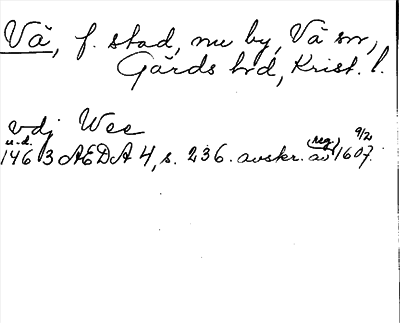 Vä, f. stad, nu by, Vä sn,
Gärds hd, Krist. l.
vdj Wee
u.d. (reg.) 9/2
1463 AEDA 4, s. 236. avskr. av 1607.